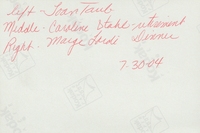 left - Joan Traub
Middle - Caroline Stahl - retirement
Right. Marge Lordi Dinner
7-30-04